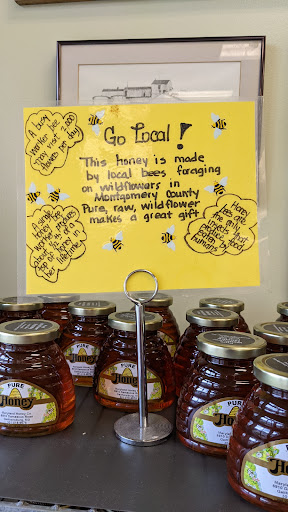 Go Local!
This honey is made
by local bees foraging
on wildflowers in
Montgomery County
Pure, raw, wildflower
makes a great gift
A busy
worker bee
may visit 2,000
flowers per day
A single
honey bee
worker produces
about 1/12 of a
tsp of honey in
her lifetime
Honey
bees are
the only
insect that
produce food
eaten by
humans
PURE
Honey
PURE
Honey
PURE
Honey
PURE
Honey